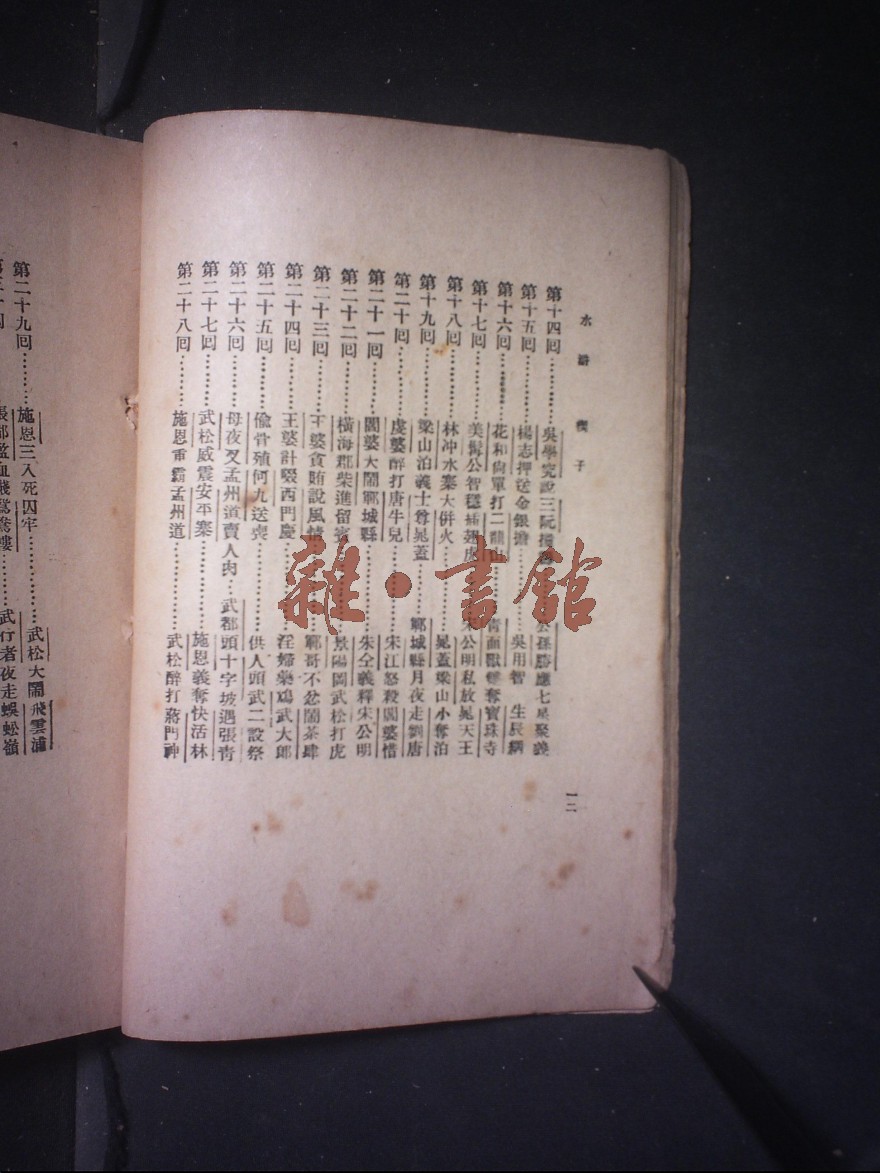 水滸 楔子
第十四回………吳學究說三阮撞 公孫勝應七星聚義
第十五回………楊志押送金銀擔………吳用智 生辰綱
第十六回………花和尚單打二龍山 青面獸雙奪寶珠寺
第十七回………美髯公智穩插翅虎 宋公明私放晁天王
第十八回………林冲水寨大併火 晁蓋梁山小奪泊
第十九回………梁山泊義士尊晁蓋 鄆城縣月夜走劉唐
第二十回………虔婆醉打唐牛兒 宋江怒殺閻婆惜
第二十一回………閻婆大鬧鄆城縣 朱仝義釋宋公明
第二十二回………橫海郡柴進留賓 景陽岡武松打虎
第二十三回………王婆貪賄說風情 鄆哥不忿鬧茶肆
第二十四回………王婆計啜西門慶………淫婦藥鴆武大郎
第二十五回………偷骨殖何九送喪………供人頭武二設祭
第二十六回………母夜叉孟州道賣人肉…武都頭十字坡遇張青
第二十七回………武松威震安平寨………施恩義奪快活林
第二十八回………施恩重霸孟州道………武松醉打蔣門神
一二
第二十九回………施恩三入死囚牢………武松大鬧飛雲浦
張都監血濺鴛鴦樓………武行者夜走蜈蚣嶺
雜·書館